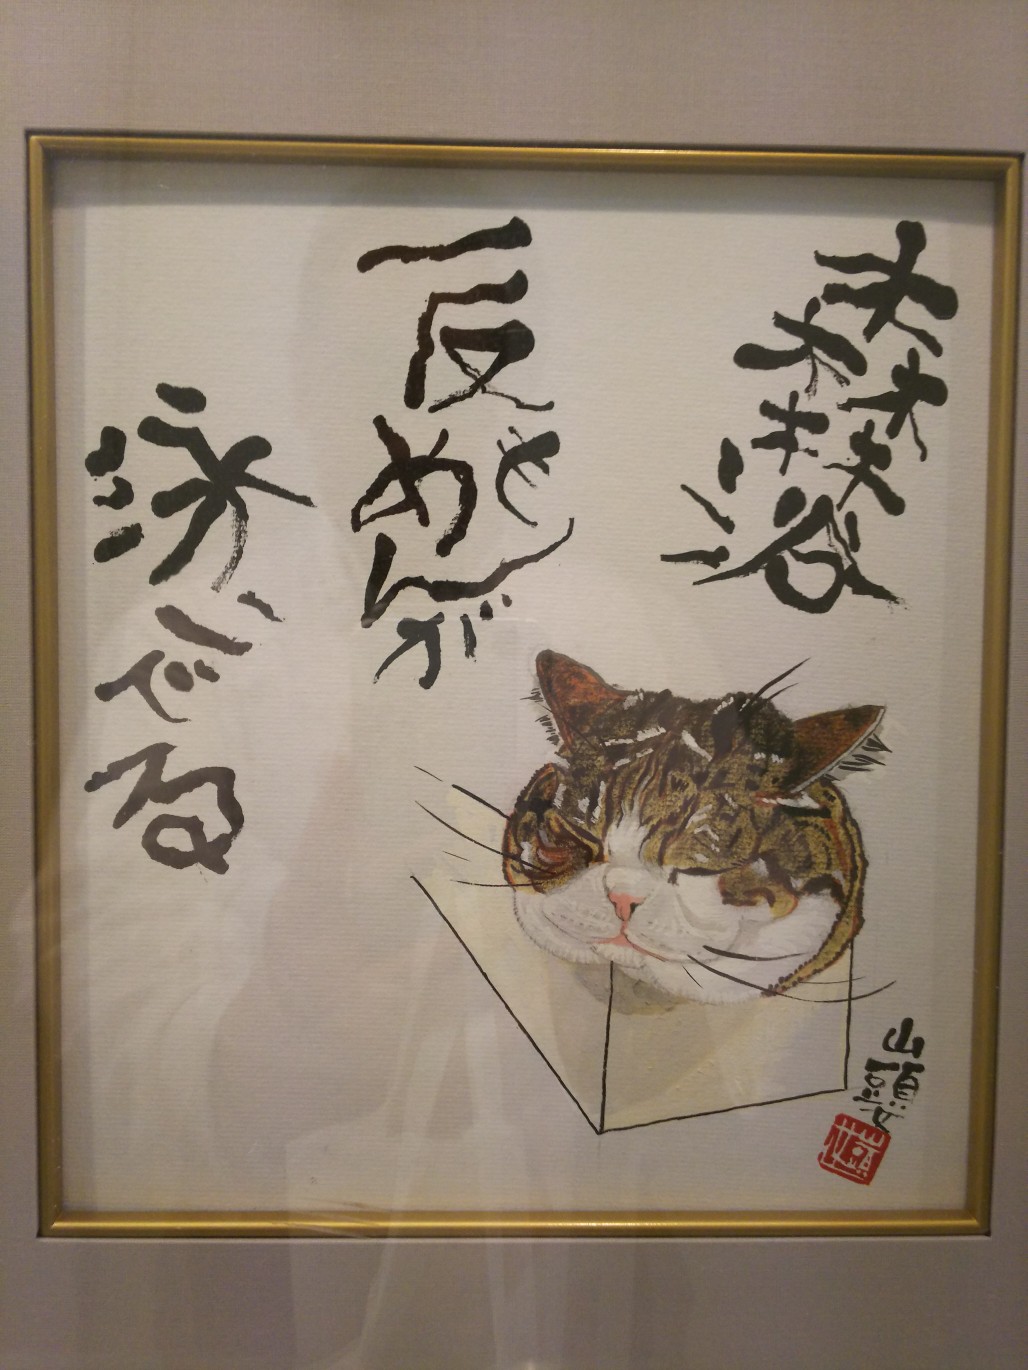 森林浴
一反もめんが
泳いでる